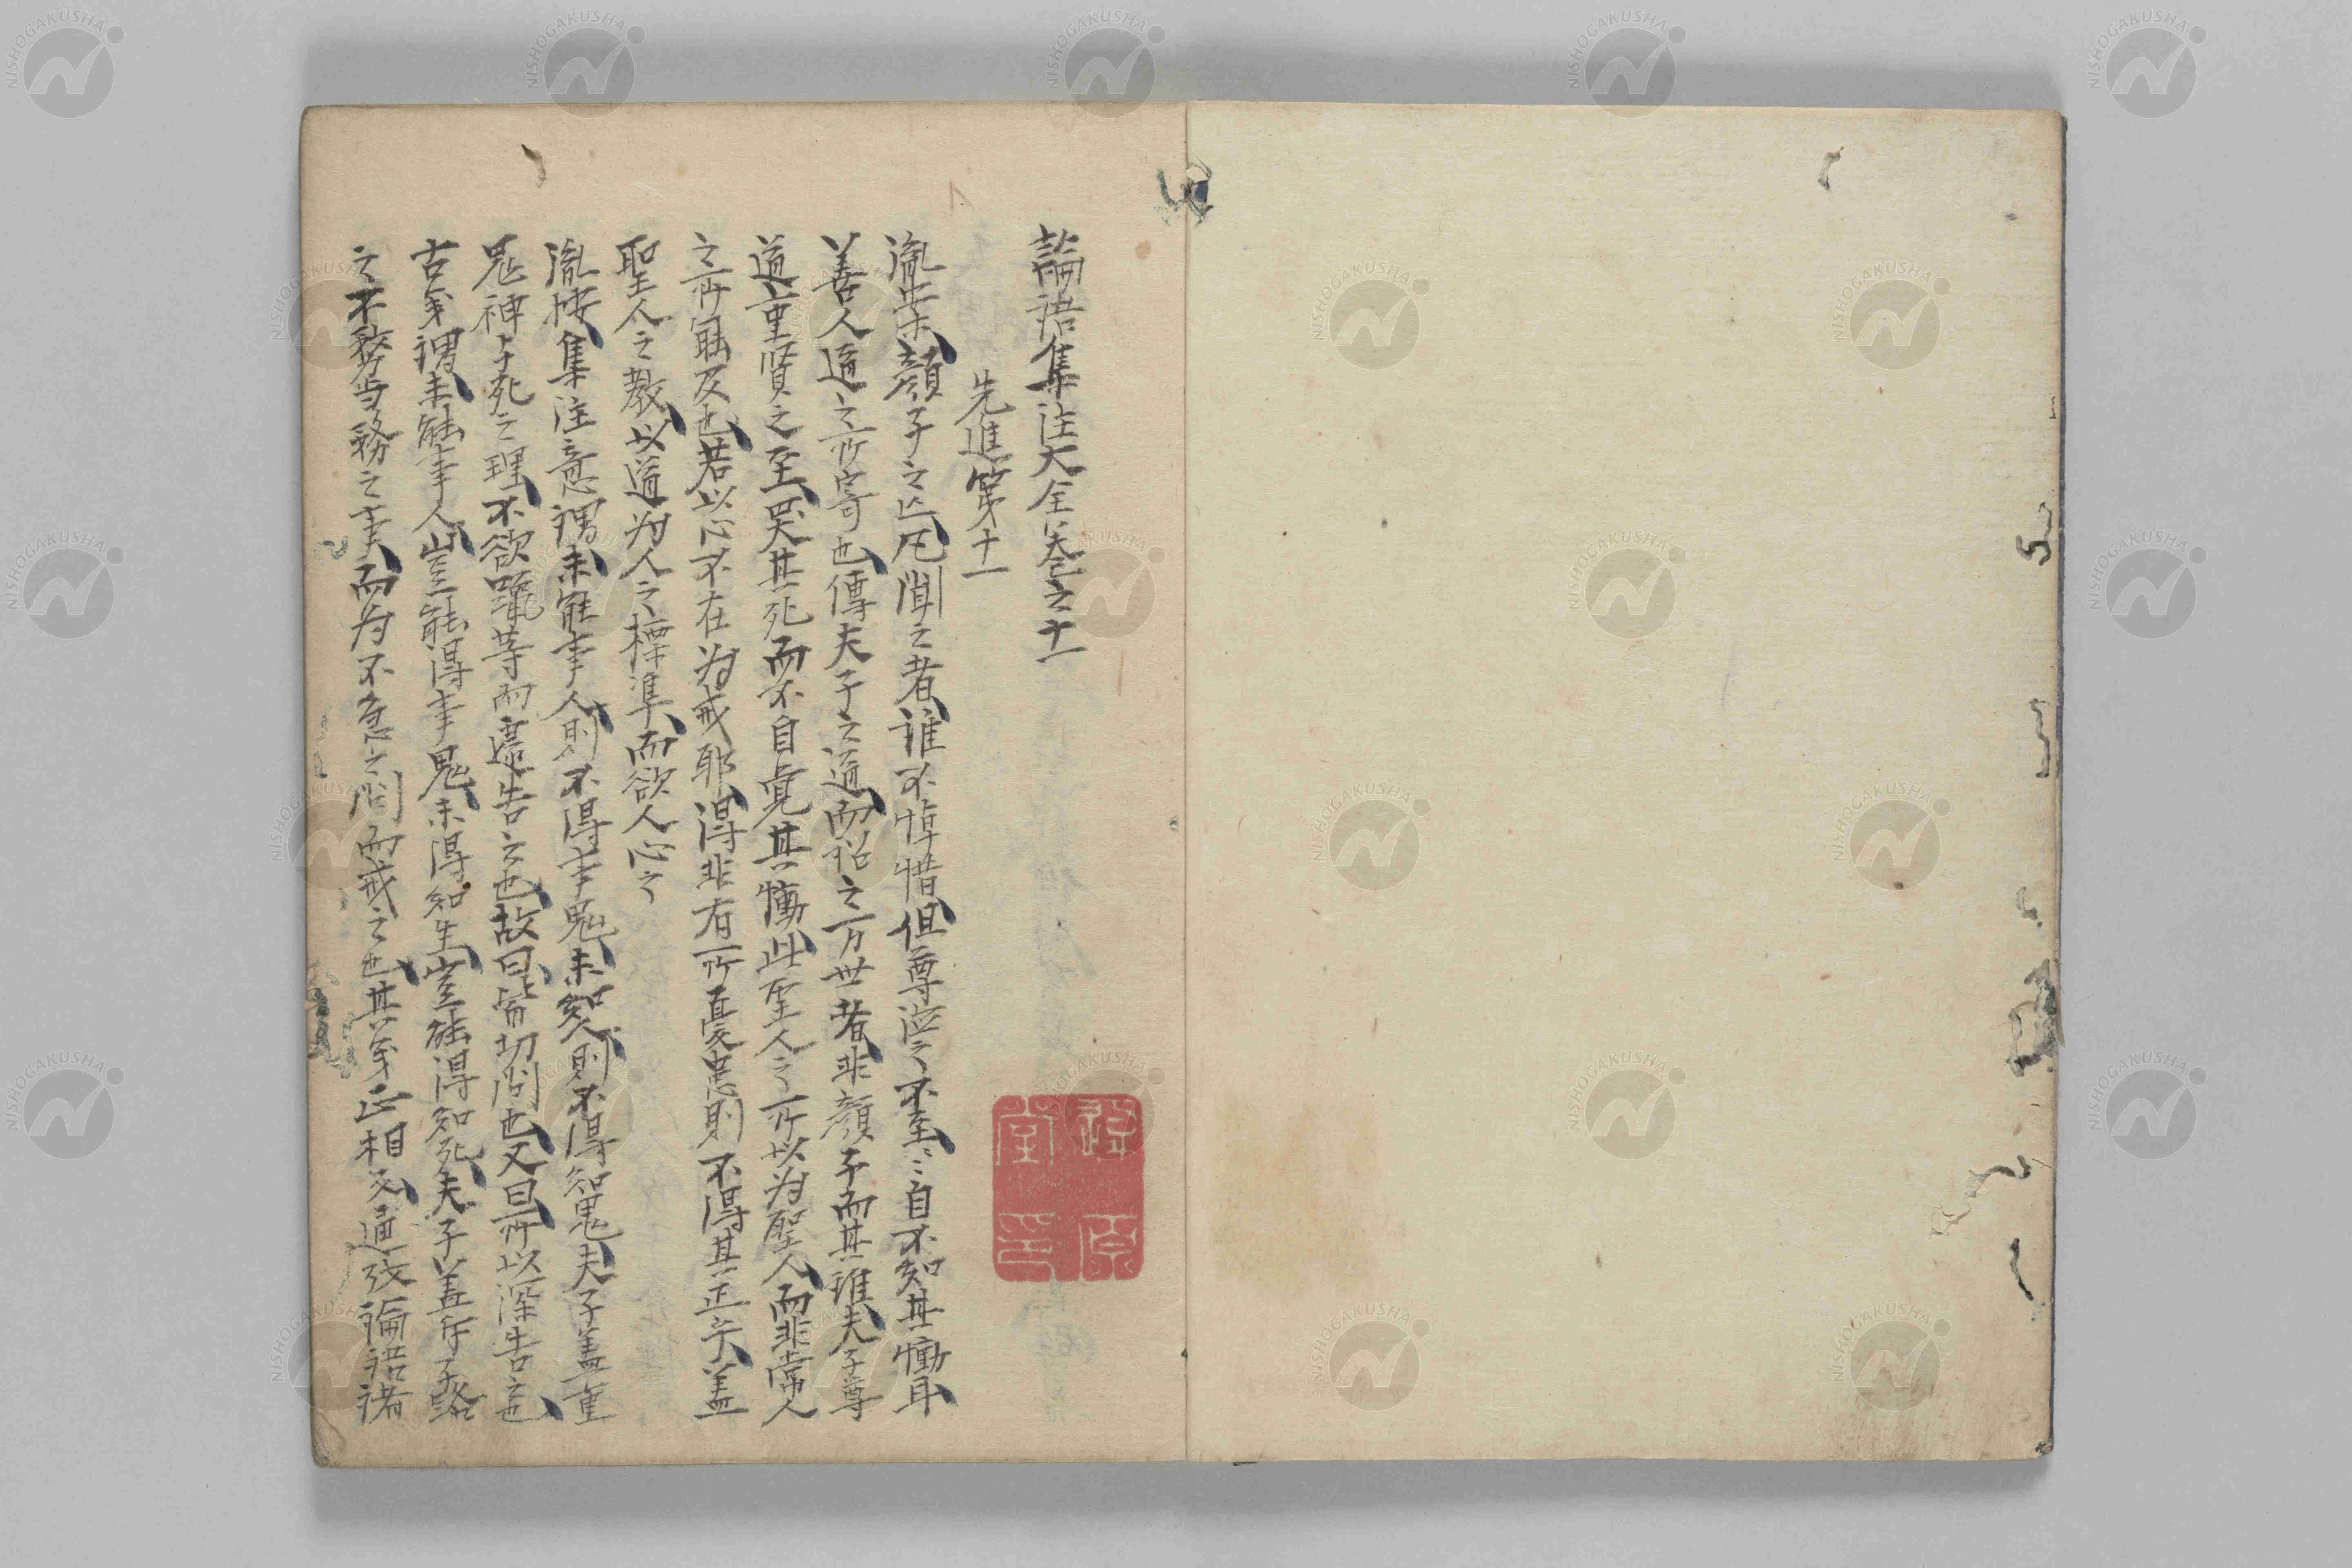 論語集注大全巻之十一
先進第十一
胤案顔子之亡凡聞之者誰不悼惜但尊涖之不至〻自不知其慟耳
善人道之所寄也傳夫子之道而詔之万世者非顔子而其誰夫子尊
道重賢之至哭其死而不自覚其慟此聖人之所以為聖人而非常人
之所能及也若以心不在為戒耶得非有所憂患則不得其正乎蓋
聖人之教以道為人之標準而欲人心之
胤按集注意謂未能事人則不得事鬼未知人則不得知鬼夫子蓋重
鬼神与死之理不欲躐等而遽告之也故曰皆切問也又曰所以深告之也
古義謂未能事人豈能得事鬼未得知生豈能得知死夫子蓋斥子路
之不務当務之事而為不急之問而戒之也其義正相反通攷論語諸
堂印
原
NISHOGAKUSHA